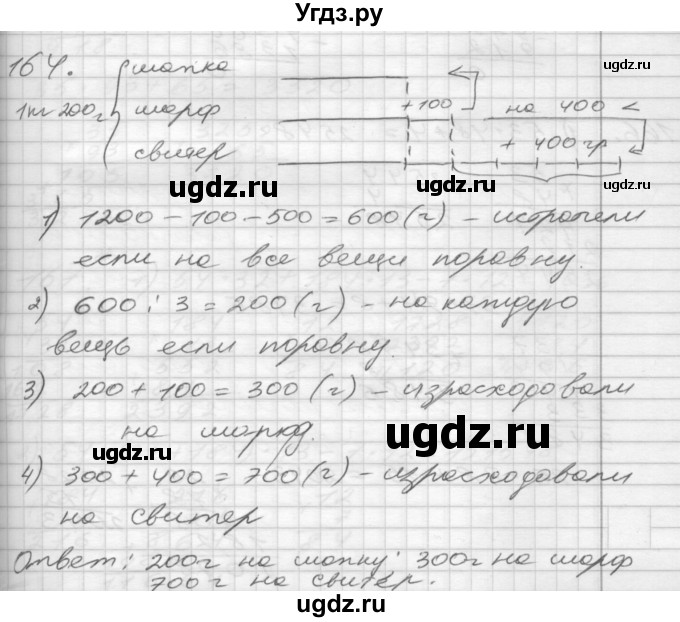 Угдз.ру
164.
шапка
ugdz.ru
+100
на 400
1кг 200г
шарф
свитер
+ 400гр
ugdz.ru
ugdz.ru
1) 1200 - 100 - 500 = 600 (г) - истратили
если на все вещи поровну.
2) 600 : 3 = 200 (г) - на каждую
вещь если поровну.
3) 200 + 100 = 300 (г) - израсходовали
на шарф.
ugdz.ru
ugdz.ru
4) 300 + 400 = 700 (г) - израсходовали
на свитер
Ответ: 200г на шапку; 300г на шарф
700 г на свитер.
ugdz.ru